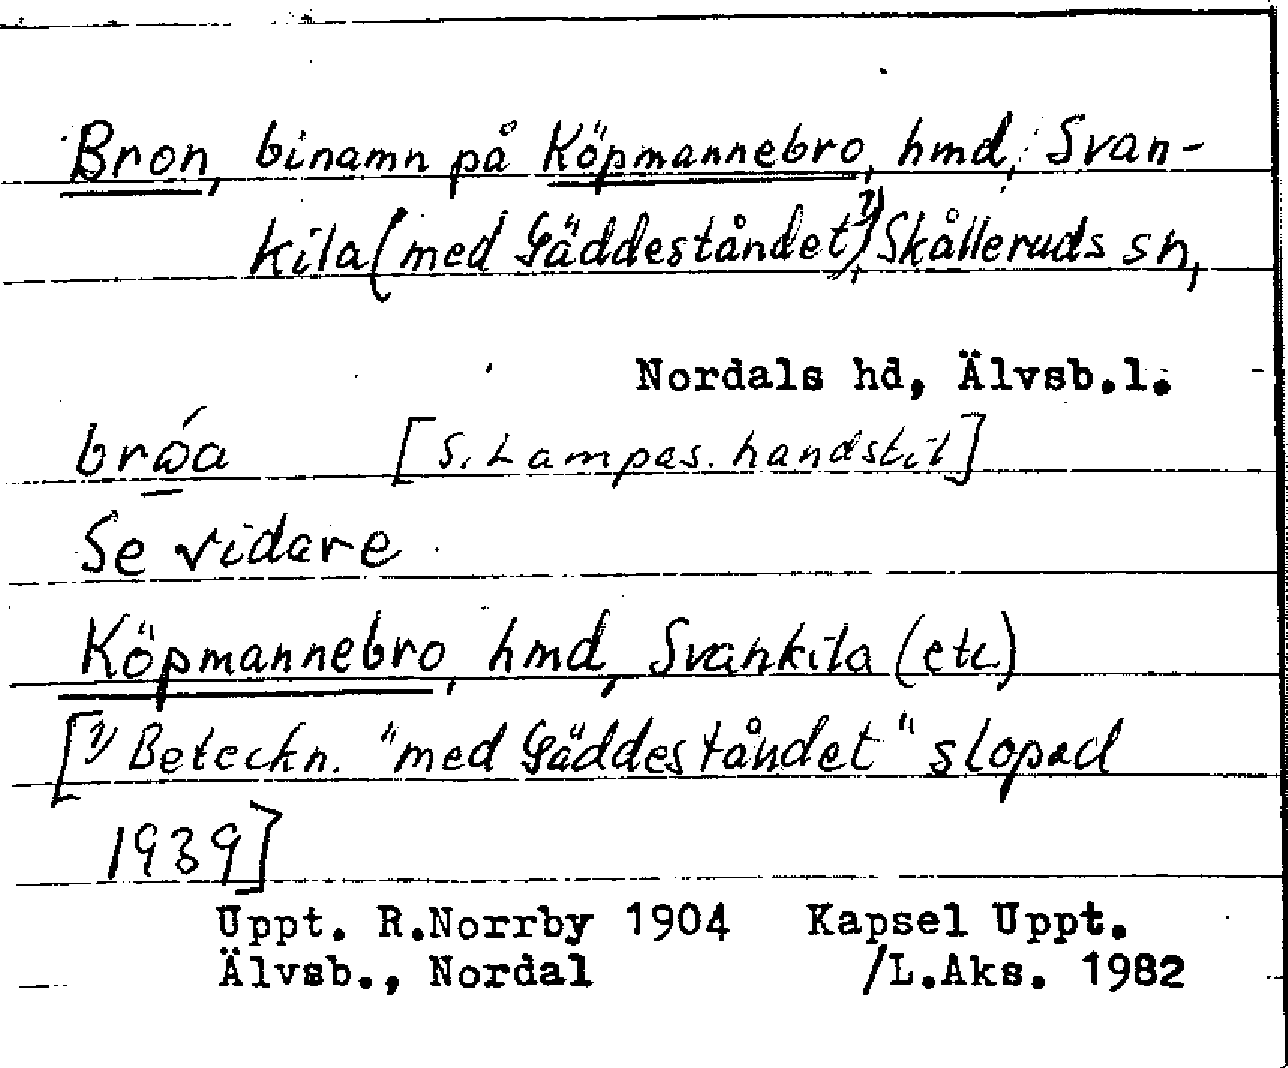 Bron, binamn på Köpmannebro, hmd, Svan-
kila (med Gäddeståndet)¹⁾, Skålleruds sn,
Nordals hd, Älvsb.l.
bróa [S. Lampas. handstil]
Se vidare
Köpmannebro, hmd, Svankila (etc)
[¹⁾ Beteckn. "med Gäddeståndet" slopad
1939]
Uppt. R.Norrby 1904 Kapsel Uppt.
Älvsb., Nordal /L.Aks. 1982